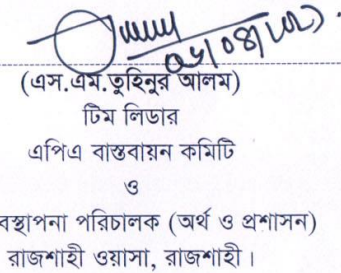 (এস.এম.তুহিনুর আলম)
টিম লিডার
এপিএ বাস্তবায়ন কমিটি
ও
বস্থাপনা পরিচালক (অর্থ ও প্রশাসন)
রাজশাহী ওয়াসা, রাজশাহী।